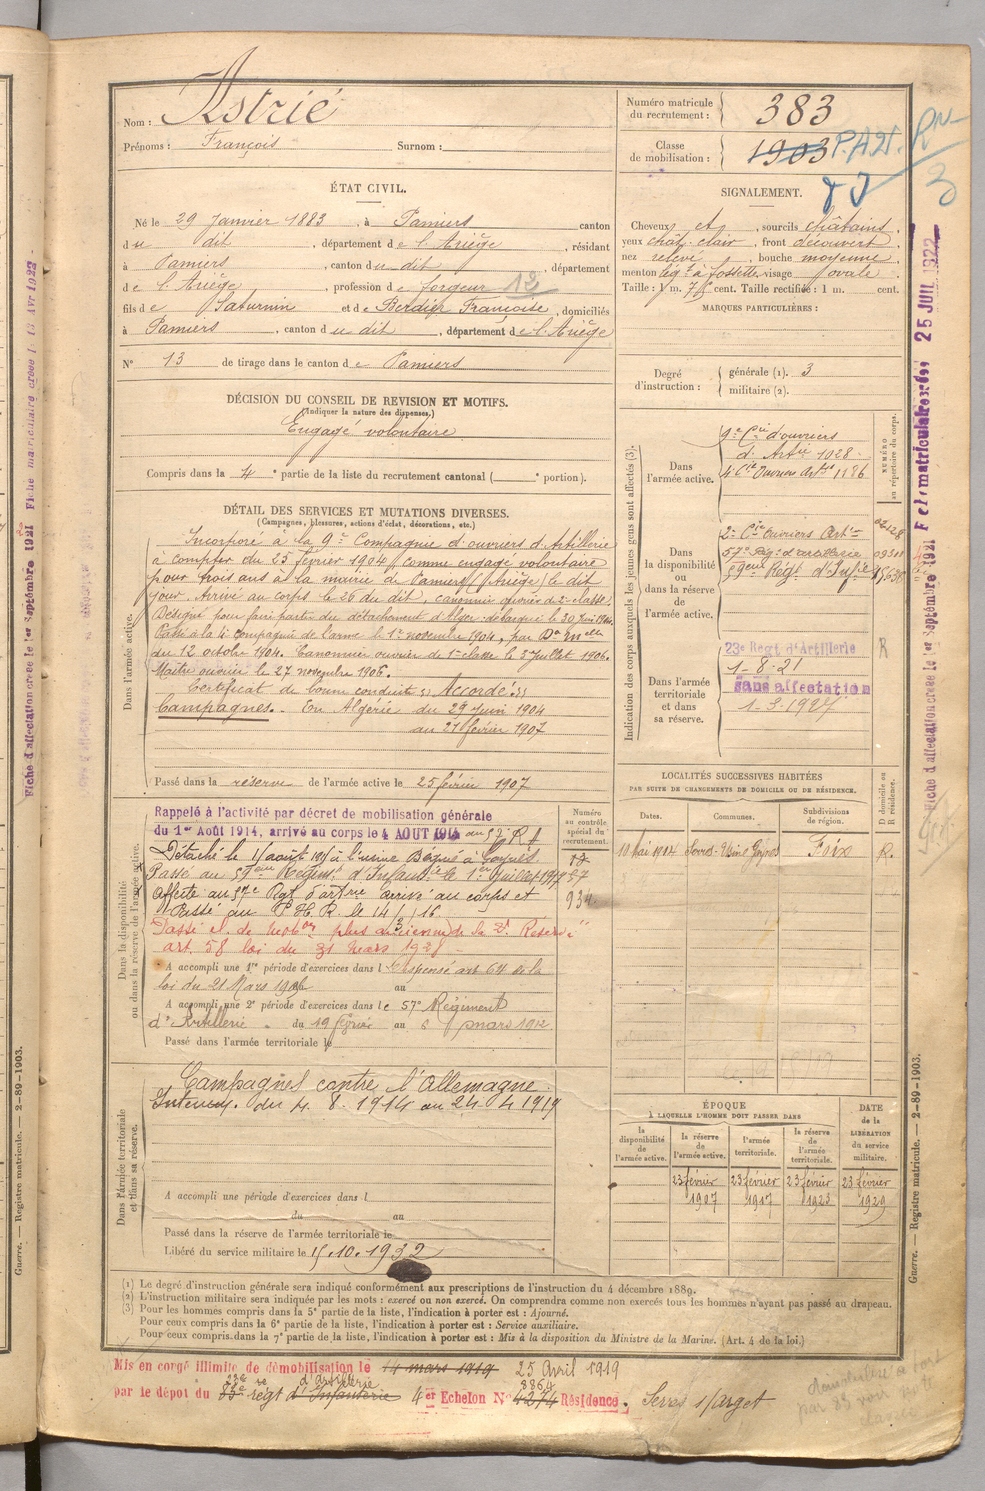 Nom : Astrié
Prénoms : François Surnom :
Numéro matricule du recrutement : 383
Classe de mobilisation : 1903 P.A.T. RN
3
ÉTAT CIVIL.
Né le 29 Janvier 1883, à Pamiers canton
du dit, département de l'Ariège, résidant
à Pamiers, canton du dit, département
de l'Ariège, profession de forgeur 12
fils de Saturnin et de Berdier Françoise, domiciliés
à Pamiers, canton du dit, département de l'Ariège
N° 13 de tirage dans le canton de Pamiers
SIGNALEMENT.
Cheveux et, sourcils châtains,
yeux chât. clair, front découvert,
nez relevé, bouche moyenne,
menton lég.t à fossette visage ovale.
Taille : 1 m. 76 cent. Taille rectifiée : 1 m. cent.
MARQUES PARTICULIÈRES :
Degré d'instruction : générale (1). 3
militaire (2).
DÉCISION DU CONSEIL DE REVISION ET MOTIFS.
(Indiquer la nature des dispenses.)
Engagé volontaire
Compris dans la 4e partie de la liste du recrutement cantonal ( e portion).
DÉTAIL DES SERVICES ET MUTATIONS DIVERSES.
(Campagnes, blessures, actions d'éclat, décorations, etc.)
Dans l'armée active.
Incorporé à la 9e Compagnie d'ouvriers d'Artillerie
à compter du 25 février 1904, comme engagé volontaire
pour trois ans à la mairie de Pamiers (Ariège) le dit
jour. Arrivé au corps le 26 du dit, canonnier ouvrier de 2e classe.
Désigné pour faire partie du détachement d'Alger débarqué le 30 Juin 1904.
Passé à la 4e compagnie de l'arme le 1er novembre 1904, par Don mlle
du 12 octobre 1904. Canonnier ouvrier de 1e classe le 3 Juillet 1906.
Maître ouvrier le 27 novembre 1906.
Certificat de bonne conduite "Accordé"
Campagnes. - En Algérie du 29 Juin 1904
au 21 février 1907
Passé dans la réserve de l'armée active le 25 février 1907
Indication des corps auxquels les jeunes gens sont affectés (3).
NUMÉRO au répertoire du corps.
Dans l'armée active.
9e Cie d'ouvriers
d'Artie 1028
4e Cie Ouvriers Artie 1186
Dans la disponibilité ou dans la réserve de l'armée active.
2e Cie Ouvriers Artie
57e Rég.t d'artillerie 09311
59eme Régt d'Infie
Dans l'armée territoriale et dans sa réserve.
23e Regt d'Artillerie R
1-8-21
sans affectation
1-3-1927
LOCALITÉS SUCCESSIVES HABITÉES
PAR SUITE DE CHANGEMENTS DE DOMICILE OU DE RÉSIDENCE.
Dates. Communes. Subdivisions de région. D domicile ou R résidence.
Foix R.
Dans la disponibilité ou dans la réserve de l'armée active.
Numéro au contrôle spécial du recrutement.
Rappelé à l'activité par décret de mobilisation générale
du 1er Août 1914, arrivé au corps le 4 AOUT 1914 au 57e R A
Détaché le 1 août 1915 à l'usine
Passé au 59ème Régimt d'Infanterie le 1er Juillet 1917
Affecté au 57e Rgt d'artrie arrivé au corps et
Passé au P.H.R. le 14/3/16
934
Passé cl. de mobon plus ancienne de la 2e Réserve
art. 58 loi du 31 mars 1928
A accompli une 1re période d'exercices dans l Dispensé art 64 de la
loi du 21 Mars 1906 au
A accompli une 2e période d'exercices dans le 57e Régiment
d'Artillerie du 19 février au 6 mars 1912
Passé dans l'armée territoriale le
Dans l'armée territoriale et dans sa réserve.
Campagnes contre l'Allemagne
Intérieur. du 4 8 1914 au 24 4 1919
A accompli une période d'exercices dans l
du au
Passé dans la réserve de l'armée territoriale le
Libéré du service militaire le 15.10.1932
ÉPOQUE
À LAQUELLE L'HOMME DOIT PASSER DANS
DATE de la LIBÉRATION du service militaire.
la disponibilité de l'armée active. la réserve de l'armée active. l'armée territoriale. la réserve de l'armée territoriale.
23 février 1907 23 février 1917 23 février 1923 23 février 1929
(1) Le degré d'instruction générale sera indiqué conformément aux prescriptions de l'instruction du 4 décembre 1889.
(2) L'instruction militaire sera indiquée par les mots : exercé ou non exercé. On comprendra comme non exercés tous les hommes n'ayant pas passé au drapeau.
(3) Pour les hommes compris dans la 5e partie de la liste, l'indication à porter est : Ajourné.
Pour ceux compris dans la 6e partie de la liste, l'indication à porter est : Service auxiliaire.
Pour ceux compris dans la 7e partie de la liste, l'indication à porter est : Mis à la disposition du Ministre de la Marine. (Art. 4 de la loi.)
Mis en congé illimité de démobilisation le 14 mars 1919 25 Avril 1919
23e d'Artillerie 8864
par le dépot du régt d'Infanterie 4er Echelon N° 4274 Résidence. Serres s/Arget
Guerre. — Registre matricule. — 2-89-1903.
Guerre. — Registre matricule. — 2-89-1903.
Fiche d'affectation créée le 1er Septembre 1921
Fiche matriculaire créée le 13 Avr 1923
Fiche d'affectation créée le 1er Septembre 1921
Fche matriculaire créée 25 JUIL 1922